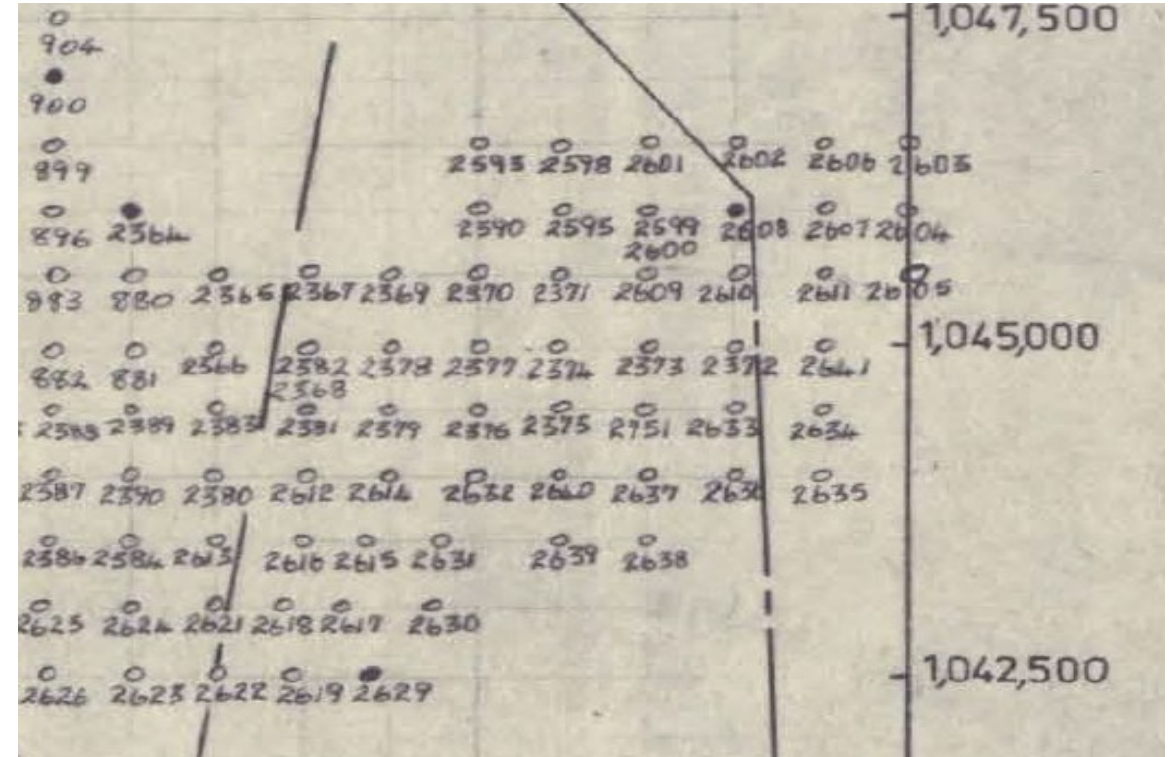 1,047,500
904
900
899
2593 2598 2601 2602 2606 2603
896 2364 2590 2595 2599 2608 2607 2604
2600
883 880 2365 2367 2369 2370 2371 2609 2610 2611 2605
1,045,000
882 881 2366 2382 2378 2377 2374 2373 2372 2641
2368
2388 2389 2383 2381 2379 2376 2375 2751 2633 2634
2387 2390 2380 2612 2614 2632 2640 2637 2636 2635
2386 2384 2613 2616 2615 2631 2639 2638
2625 2624 2621 2618 2617 2630
2626 2623 2622 2619 2629
1,042,500